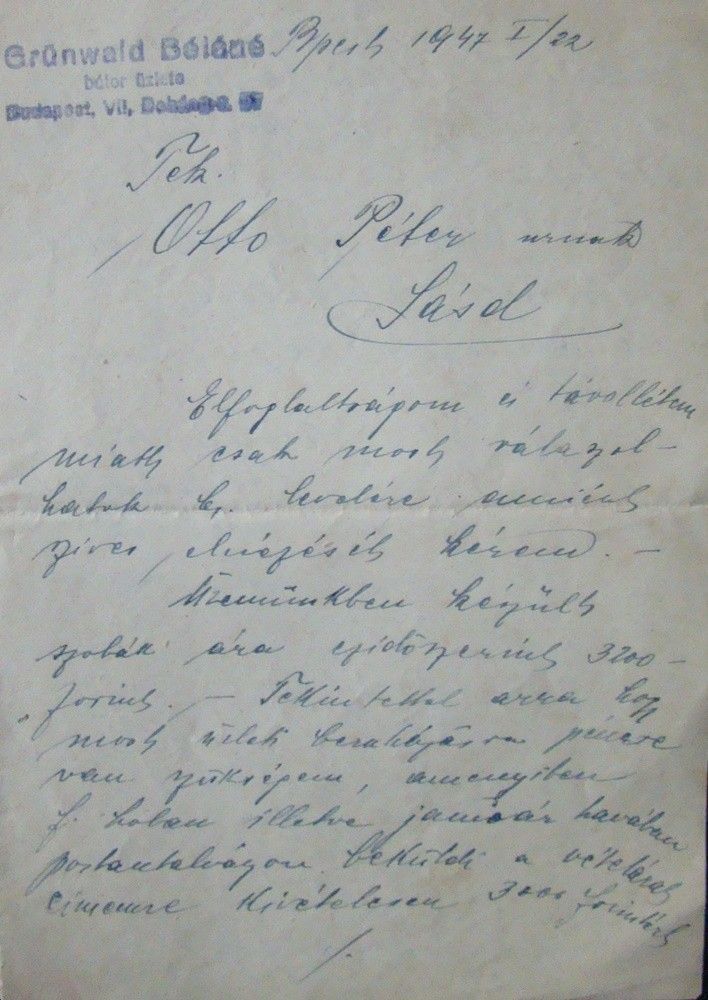 Grünwald Béláné
bútor üzlete
Budapest, VII, Dohány u. 57
Bpest 1947 I/22
Tek.
Otto Péter urnak
Sásd
Elfoglaltságom és távollétem
miatt csak most válaszol-
hatok b. levelére amiért
szives elnézését kérem. —
Üzemünkben készült
szobák ára ezidőszerint 3200-
forint. — Tekintettel arra hogy
most üzleti beruházásra pénzre
van szükségem, amenyiben
f. hóban illetve január havában
postautalványon beküldi a vételárat
címemre kivételesen 3000 forintért
/.